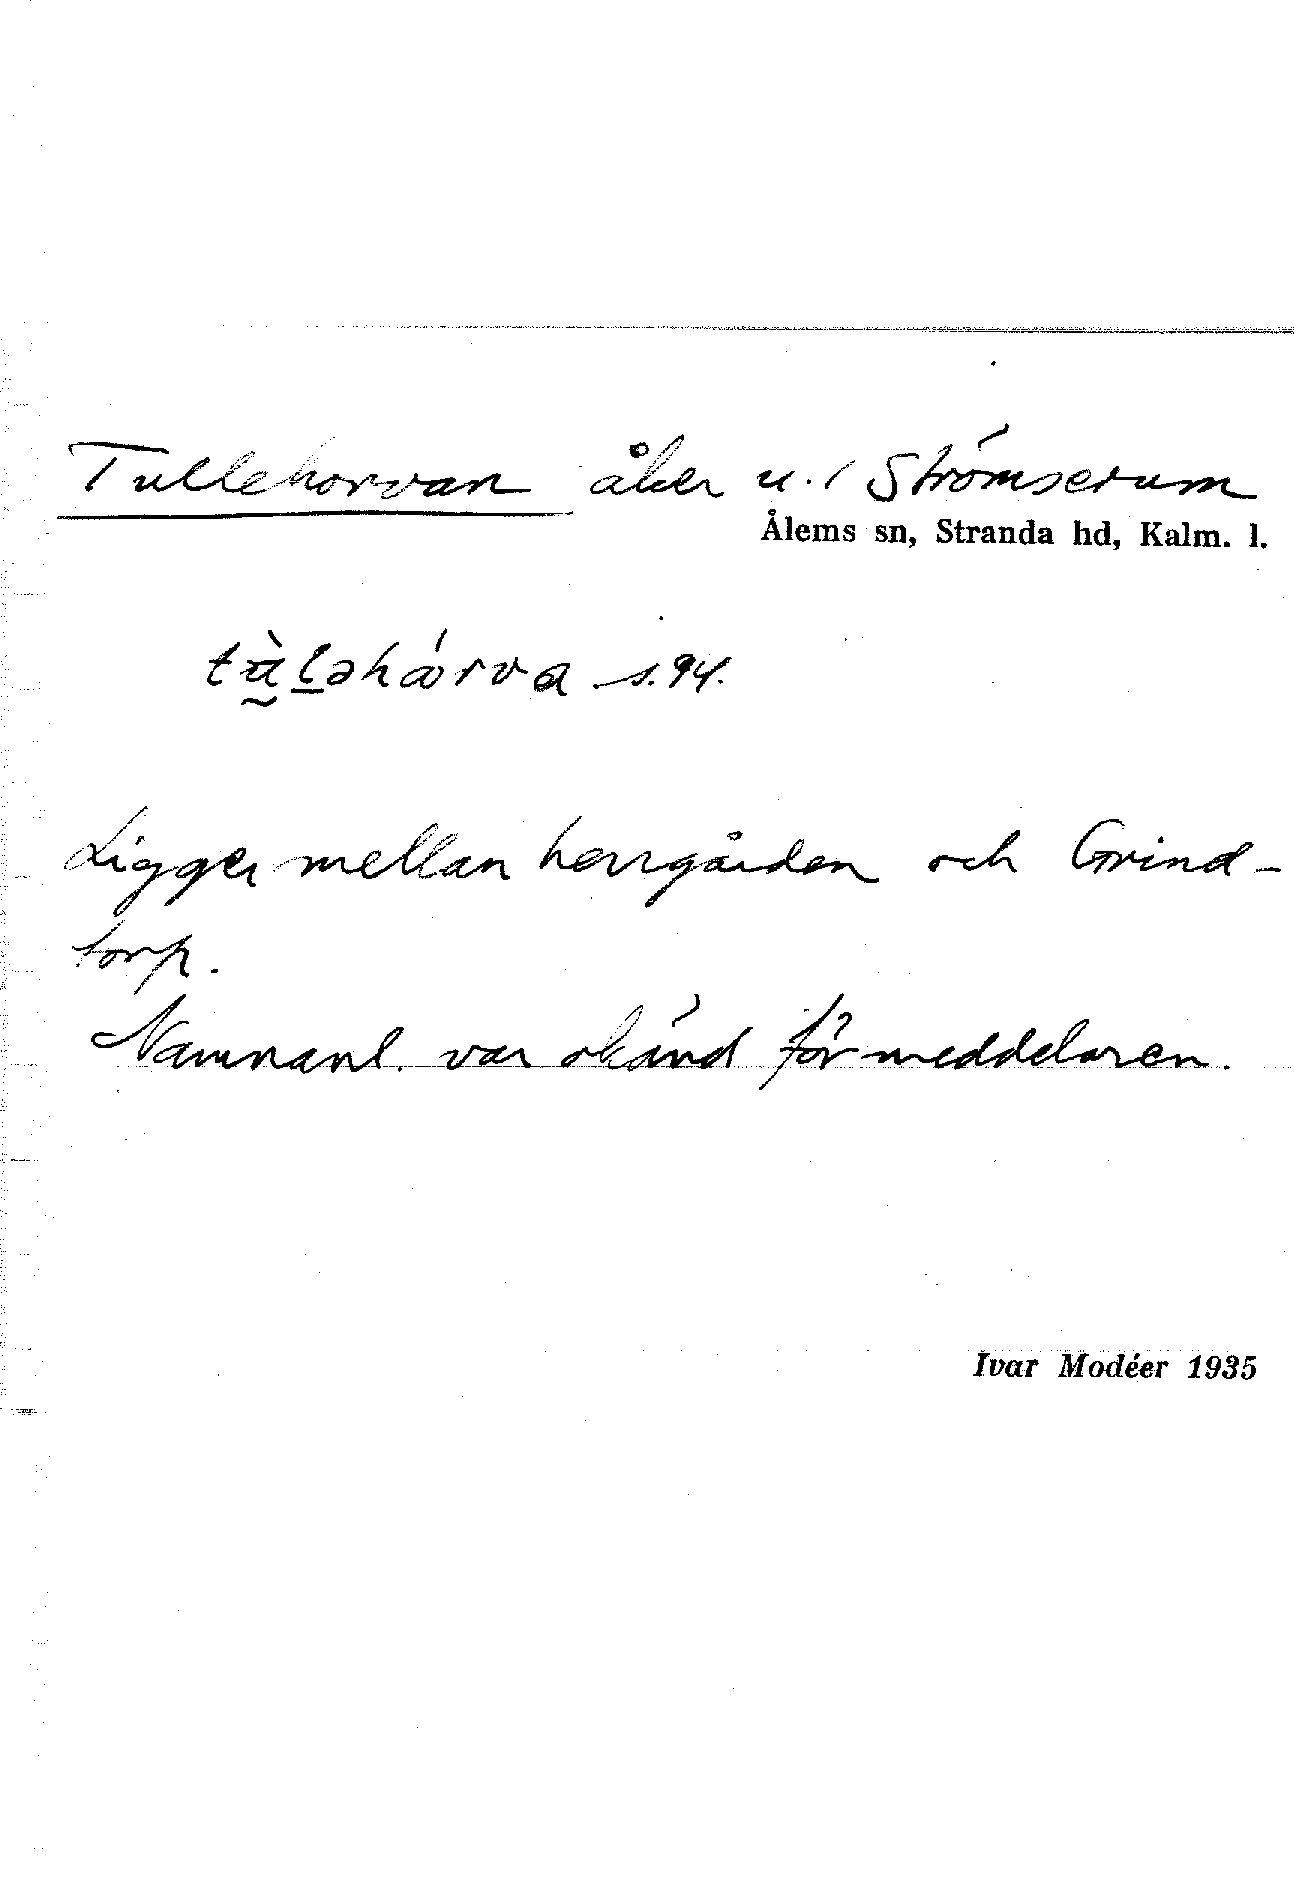 Tullehorvan åker u. / Strömserum
Ålems sn, Stranda hd, Kalm. l.
tùləhórva s. 94.
Ligger mellan herrgården och Grind-
torp.
Namnanl. var okänd för meddelaren.
Ivar Modéer 1935